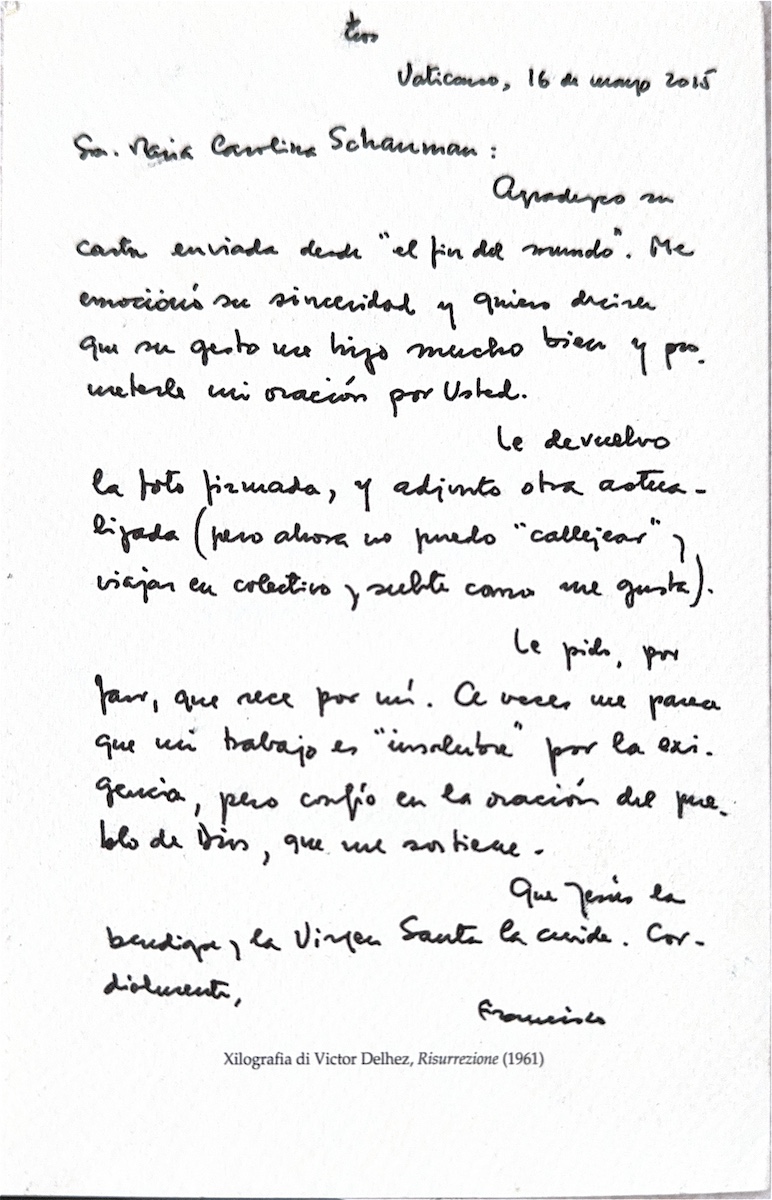 Vaticano, 16 de mayo 2015
Sra. María Carolina Schauman:
Agradezco su
carta enviada desde "el fin del mundo". Me
emocionó su sinceridad y quiero decirle
que su gesto me hizo mucho bien y pro-
meterle mi oración por Usted.
Le devuelvo
la foto firmada, y adjunto otra actua-
lizada (pero ahora no puedo "callejear" y
viajar en colectivo y subte como me gusta).
Le pido, por
favor, que rece por mí. A veces me parece
que mi trabajo es "insalubre" por la exi-
gencia, pero confío en la oración del pue-
blo de Dios, que me sostiene.
Que Jesús la
bendiga y la Virgen Santa la cuide. Cor-
dialmente,
Francisco
Xilografia di Victor Delhez, Risurrezione (1961)